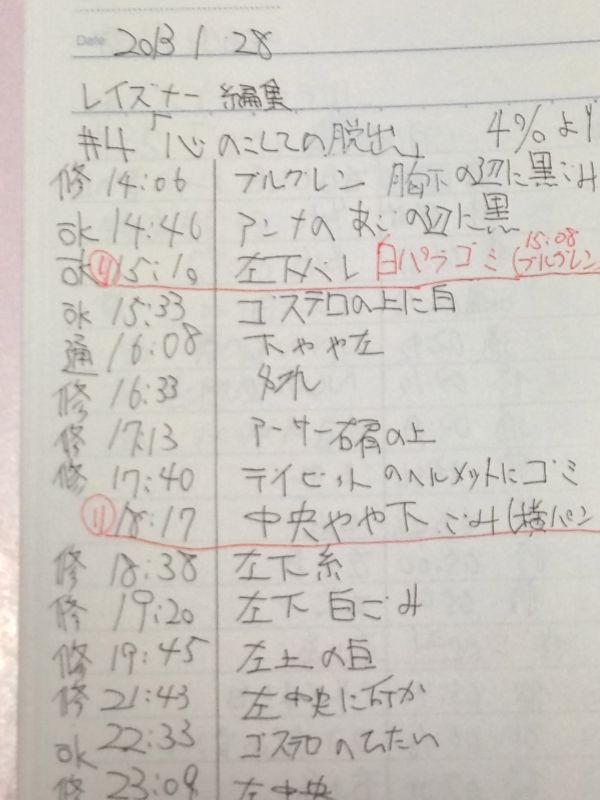 Date 2013 1 28
レイズナー 編集
#4 「心のこしての脱出」 4%より
修 14:06 ブルグレン 胸下の辺に黒ごみ
ok 14:46 アンナの あごの辺に黒
ok 15:10 左下バレ 白パラゴミ (15:08 ブルグレン
ok 15:33 ゴステロの上に白
通 16:08 下やや左
修 16:33
修 17:13 アーサー右肩の上
修 17:40 デイビットのヘルメットにゴミ
⑪ 18:17 中央やや下 ごみ (横パン
修 18:38 左下糸
修 19:20 左下 白ごみ
修 19:45 左上の白
修 21:43 左中央に何か
ok 22:33 ゴステロのひたい
修 23:09 左中央